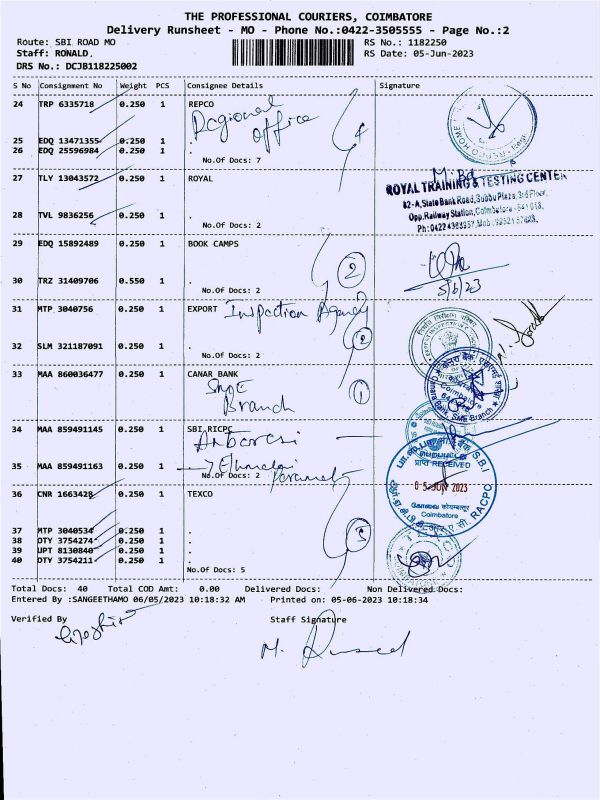 THE PROFESSIONAL COURIERS, COIMBATORE
Delivery Runsheet - MO - Phone No.:0422-3505555 - Page No.:2
Route: SBI ROAD MO RS No.: 1182250
Staff: RONALD. RS Date: 05-Jun-2023
DRS No.: DCJB118225002
S No Consignment No Weight PCS Consignee Details Signature
24 TRP 6335718 0.250 1 REPCO
Regional
office
25 EDQ 13471355 0.250 1 .
26 EDQ 25596984 0.250 1 .
No.Of Docs: 7
27 TLY 13043572 0.250 1 ROYAL
ROYAL TRAINING & TESTING CENTER
82-A, State Bank Road, Subbu Plaza, 3rd Floor,
Opp. Railway Station, Coimbatore - 641 018.
28 TVL 9836256 0.250 1 .
No.Of Docs: 2
29 EDQ 15892489 0.250 1 BOOK CAMPS
2
30 TRZ 31409706 0.550 1 .
5/6/23
No.Of Docs: 2
31 MTP 3040756 0.250 1 EXPORT Inspection Agency
2
32 SLM 321187091 0.250 1 .
No.Of Docs: 2
33 MAA 860036477 0.250 1 CANAR BANK
SME
Branch
1
Coimbatore
34 MAA 859491145 0.250 1 SBI RICPC
35 MAA 859491163 0.250 1
No.Of Docs: 2
प्राप्त RECEIVED
05 JUN 2023
Coimbatore
S.B.I. RACPC
36 CNR 1663428 0.250 1 TEXCO
37 MTP 3040534 0.250 1 .
38 DTY 3754274 0.250 1 .
39 UPT 8130840 0.250 1 .
40 DTY 3754211 0.250 1 .
5
No.Of Docs: 5
Total Docs: 40 Total COD Amt: 0.00 Delivered Docs: Non Delivered Docs:
Entered By :SANGEETHAMO 06/05/2023 10:18:32 AM Printed on: 05-06-2023 10:18:34
Verified By Staff Signature